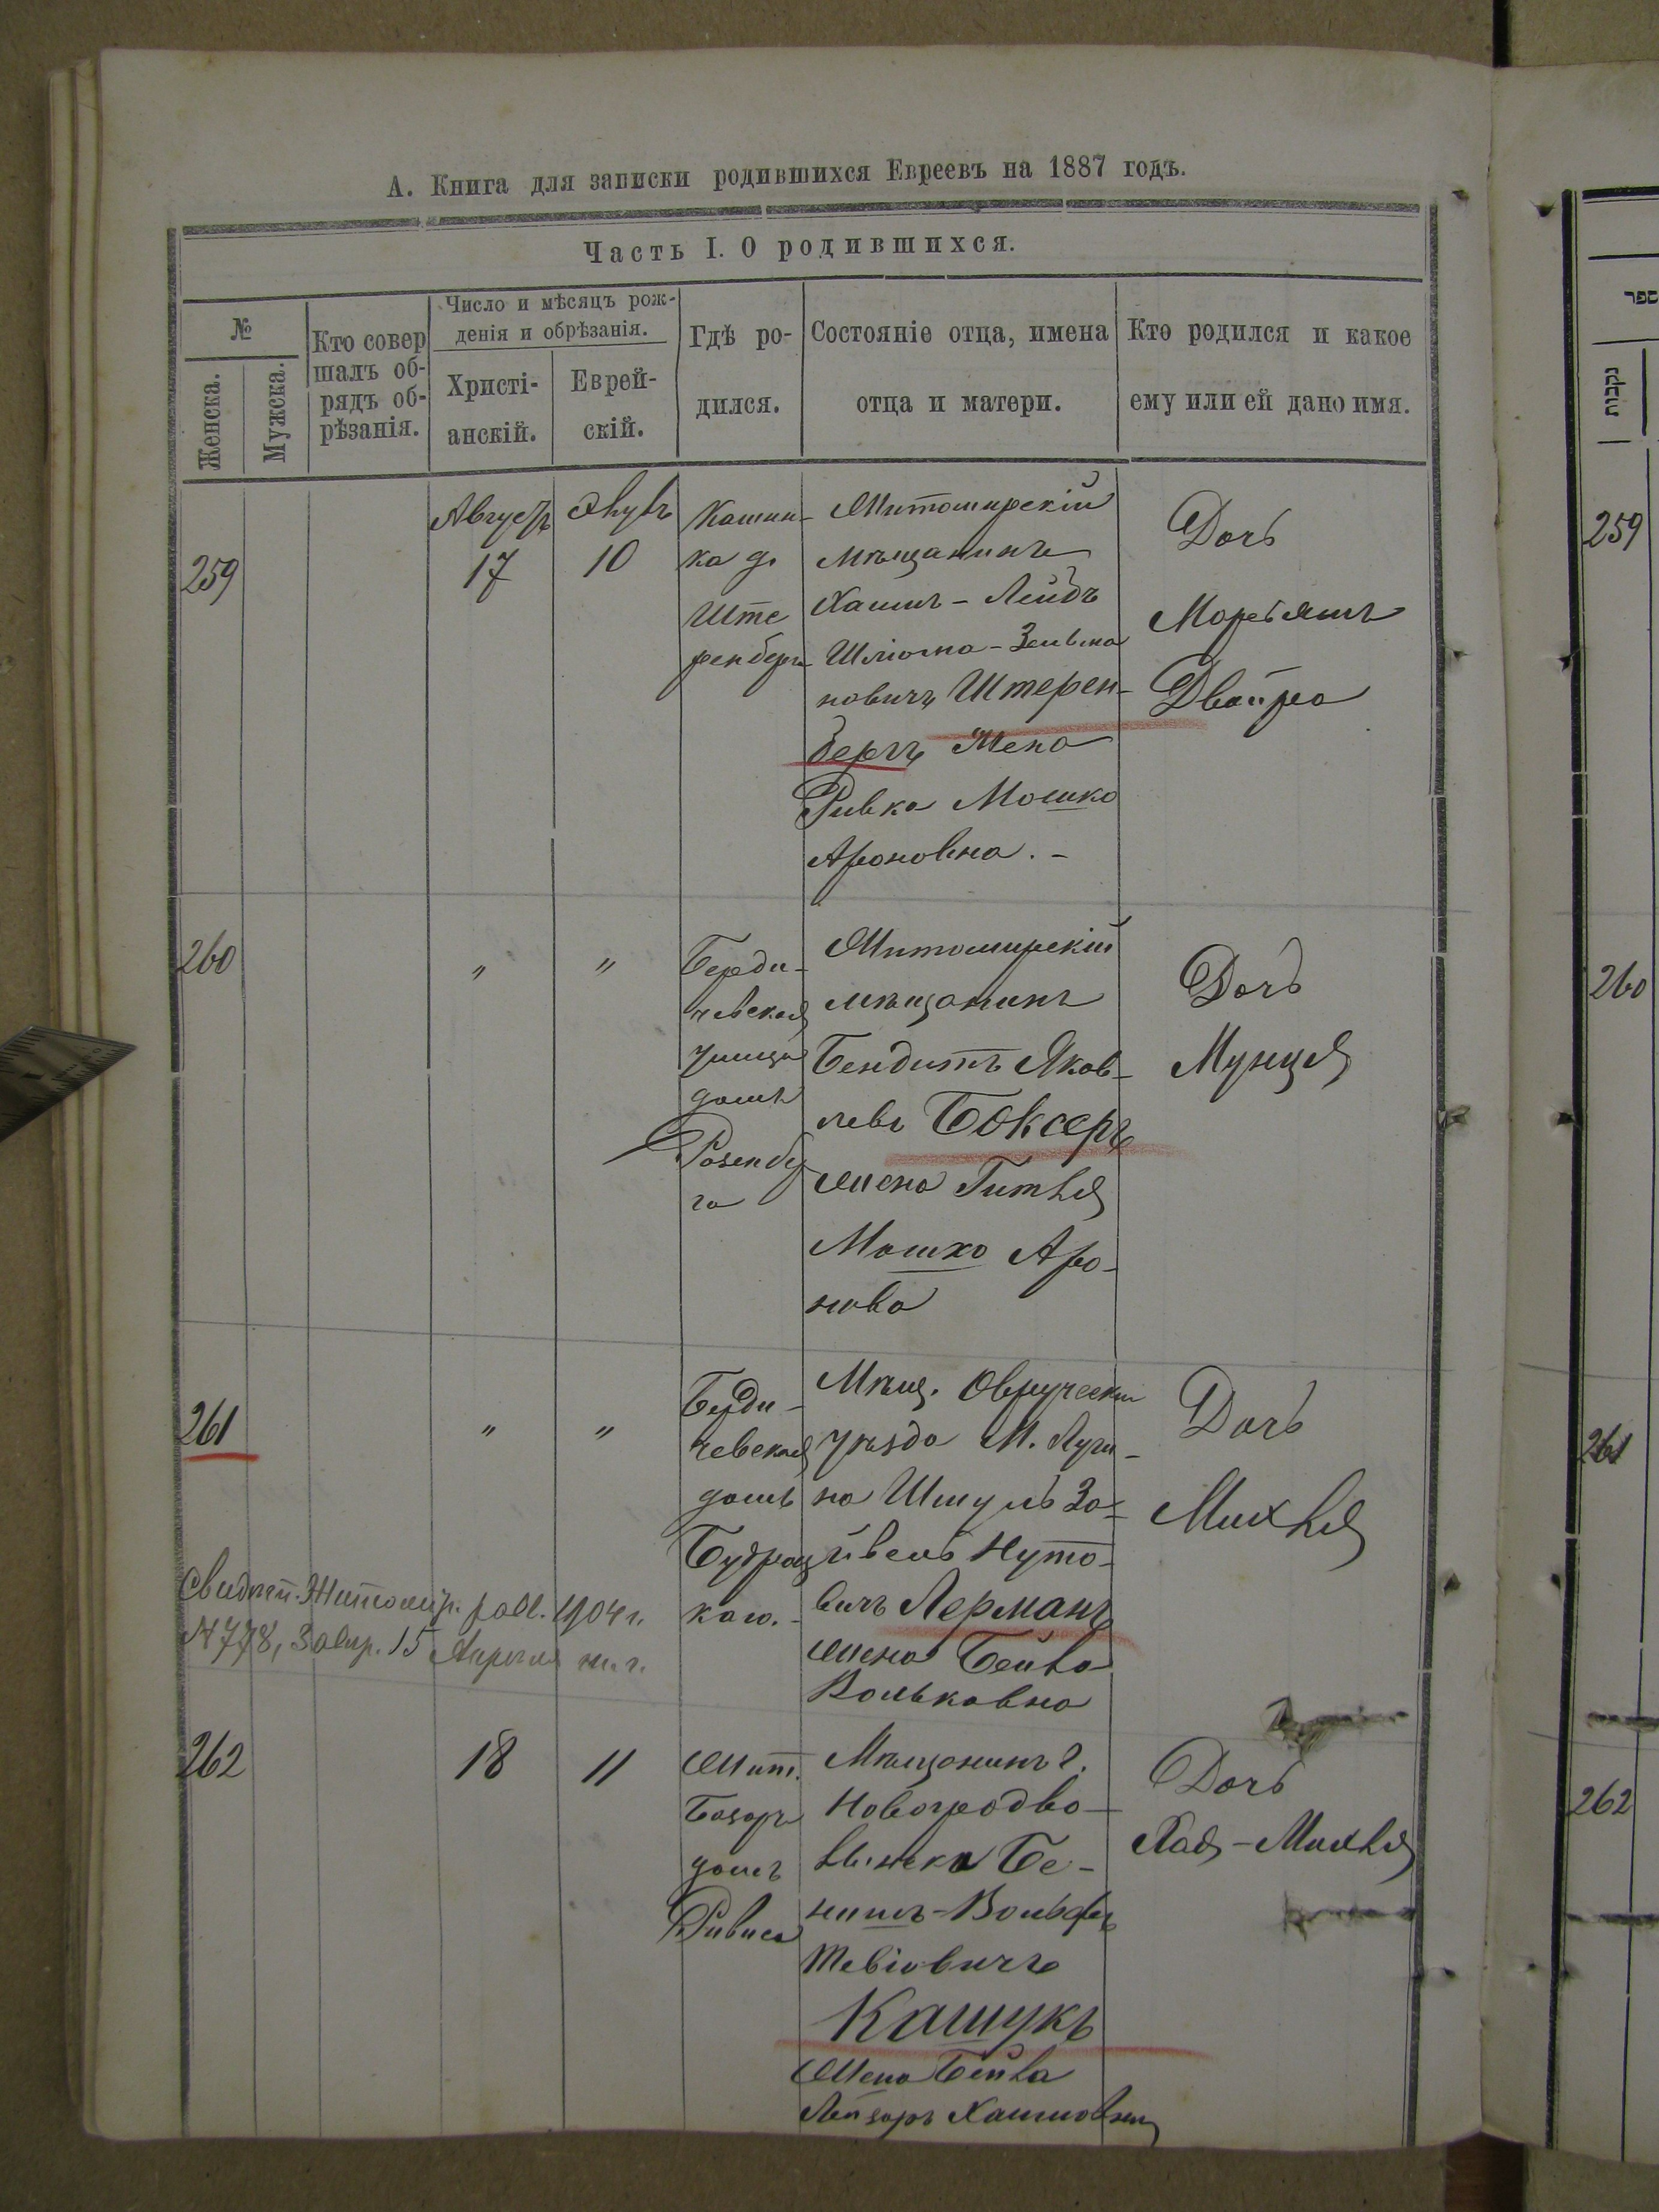 А. Книга для записки родившихся Евреевъ на 1887 годъ.
Часть I. О родившихся.
№
Женска.
Мужска.
Кто совер
шалъ об-
рядъ об-
рѣзанія.
Число и мѣсяцъ рож-
денія и обрѣзанія.
Христі-
анскій.
Еврей-
скій.
Гдѣ ро-
дился.
Состояніе отца, имена
отца и матери.
Кто родился и какое
ему или ей дано имя.
259
Августъ
17
10
Кашин-
ка д.
Ште
ренберга
Житомирскій
мѣщанинъ
Хаимъ-Лейбъ
Шліома-Зельма
новичъ Штерен-
бергъ Жена
Ривка Мошко
Ароновна.-
Дочь
Марьямъ
Двойра
260
"
"
Берди-
чевская
улица
домъ
Розенбер
га
Житомирскій
мѣщанинъ
Бендитъ Яков-
левъ Боксеръ
жена Гитля
Мошко Аро-
нова
Дочь
Мунця
261
"
"
Берди-
чевская
домъ
каго.
Мѣщ. Овручскаго
уѣзда М. Луги-
на Шмуль За-
йвель Нуто-
вичъ Лерманъ
жена Бейла
Вольковна
Дочь
Михля
Свидѣт. Житомір. равв. 1904 г.
№778, завѣр. 15 Апрѣля т.г.
262
18
11
Жит.
Базаръ
домъ
Ривиса
Мѣщанинъ г.
Новоградво-
лынска Бе-
нимъ-Вольфъ
Тевіовичъ
Кашукъ
Жена Бейла
Лейзоръ Хаимовна
Дочь
Хая-Михля
ספר
נקבות
259
260
261
262